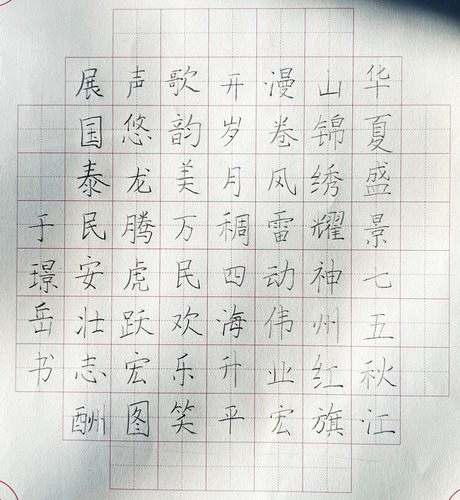 华夏盛景七五秋江
山锦绣耀神州红旗
漫卷风雷动伟业宏
开岁月稠四海升平
歌韵美万民欢乐笑
声悠龙腾虎跃宏图
展国泰民安壮志酬
于璟岳书